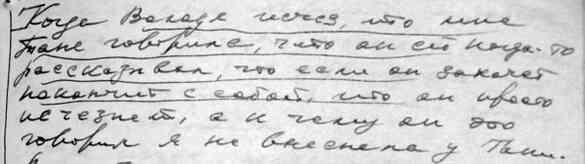 Когда Володя исчез, то мне
Таня говорила, что он ей когда-то
рассказывал, что если он захочет
покончит с собой, что он просто
исчезнет, а к чему он это
говорил я не выяснела у Тани.